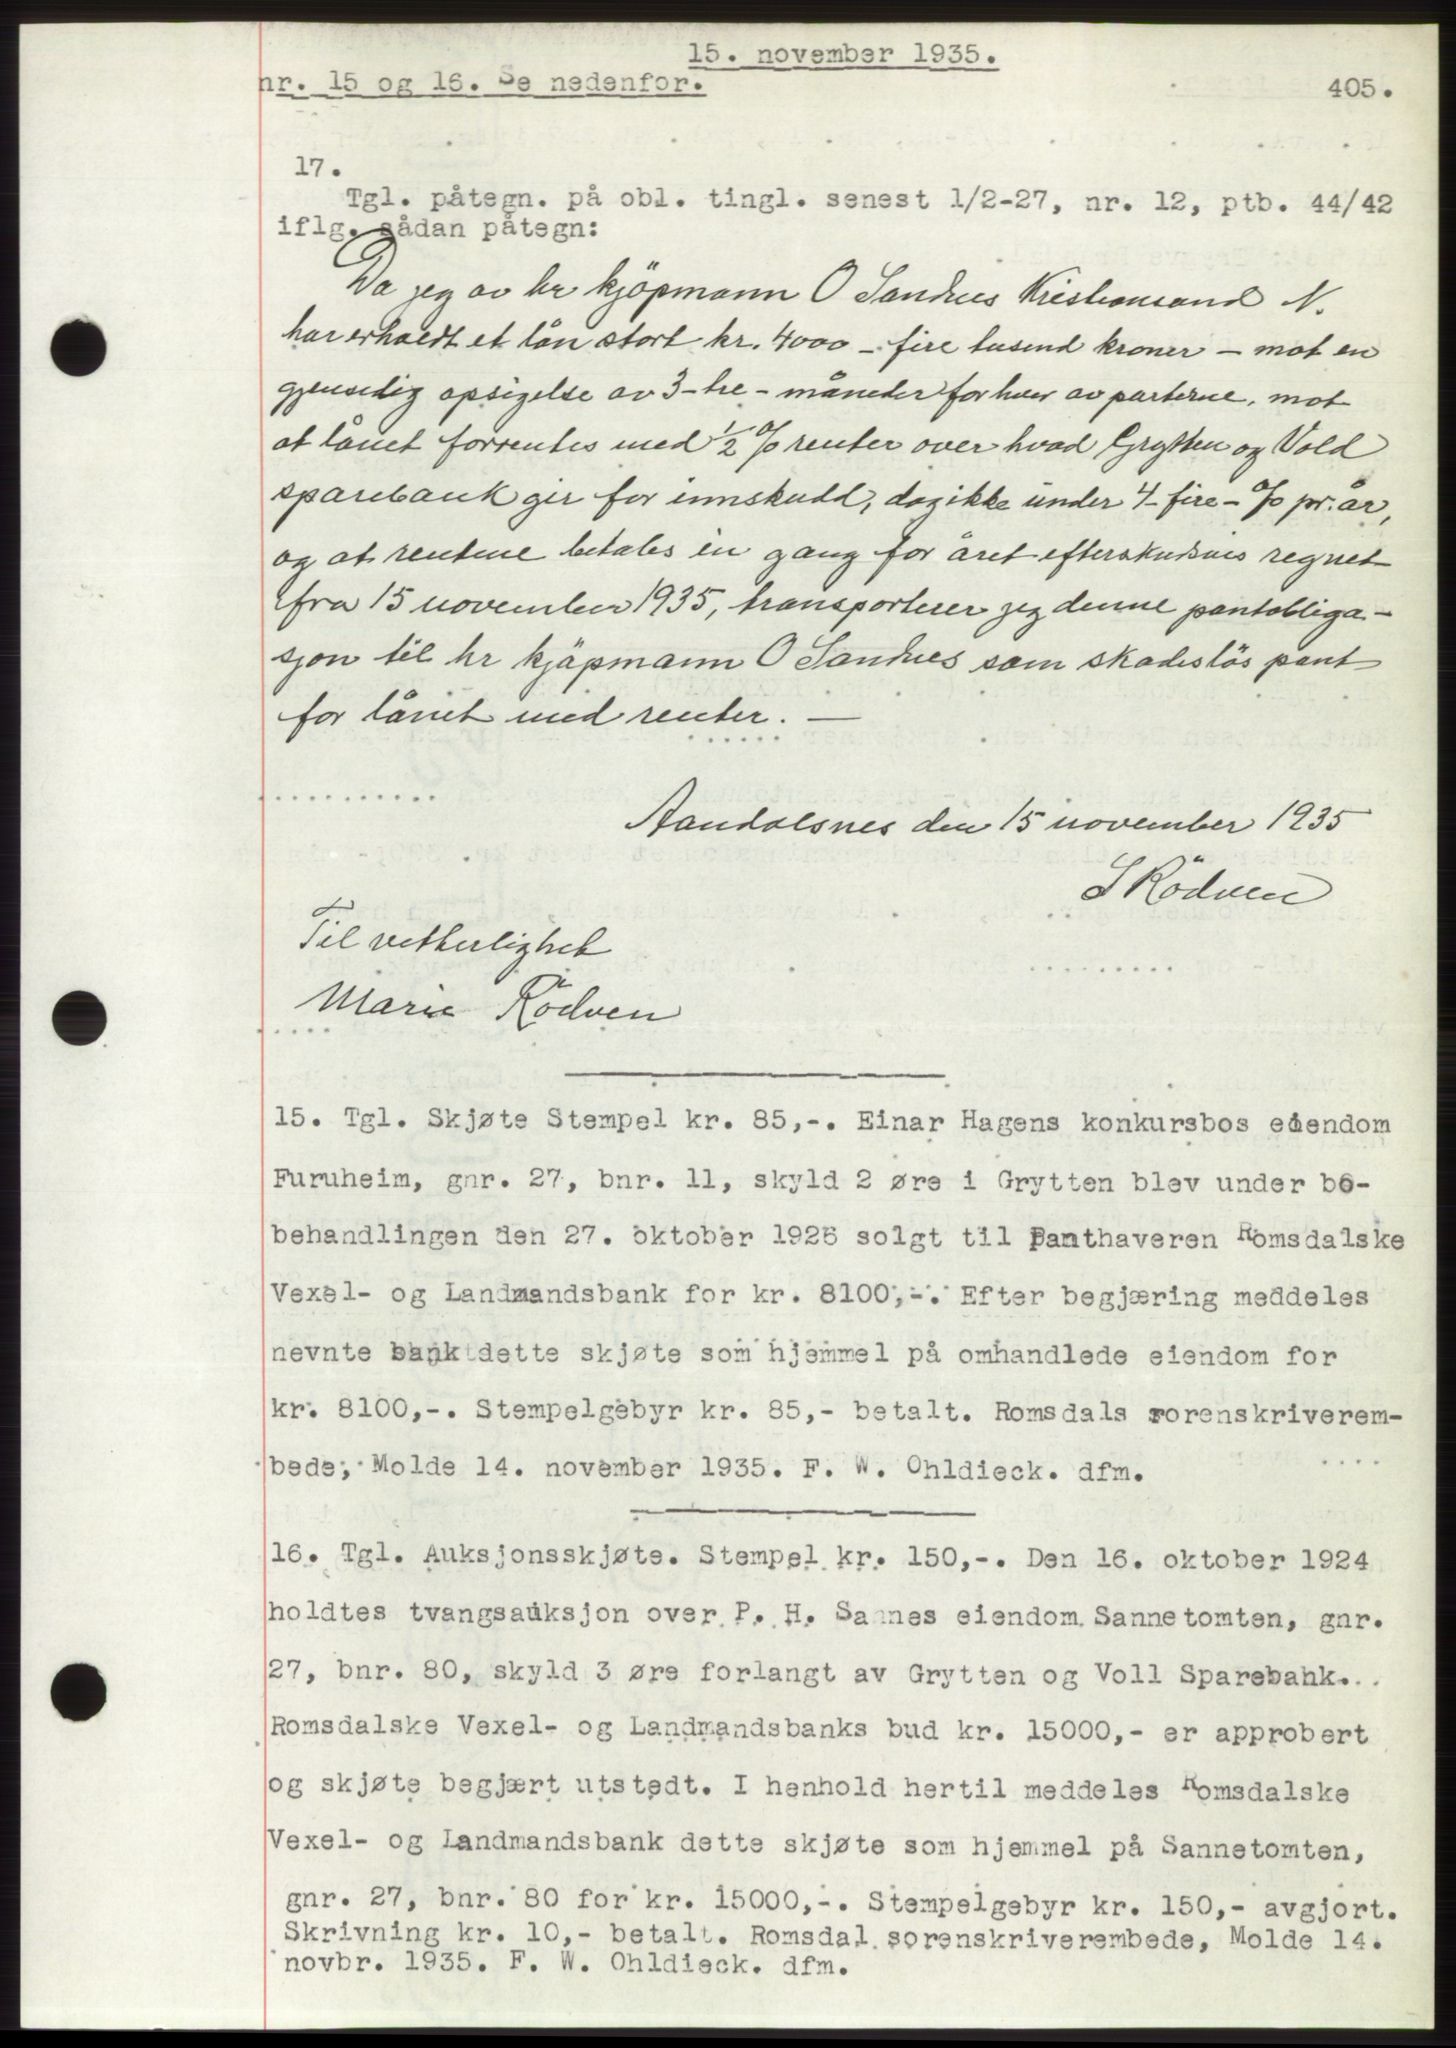 15. november 1935.
nr. 15 og 16. Se nedenfor.
405.
17.
Tgl. påtegn. på obl. tingl. senest 1/2-27, nr. 12, ptb. 44/42
iflg. sådan påtegn:
Da jeg av hr kjöpmann O Sandnes Kristiansand N.
har erholdt et lån stort kr. 4000 - fire tusend kroner - mot en
gjensidig opsigelse av 3-tre- måneder for hver av parterne, mot
at lånet forrentes med 1/2 % renter over hvad Grytten og Vold
sparebank gir for innskudd, dog ikke under 4-fire-% pr. år,
og at rentene betales en gang for året efterskudsvis regnet
fra 15 november 1935, transporterer jeg denne pantobliga-
sjon til hr kjöpmann O Sandnes som skadeslös pant
for lånet med renter. —
Aandalsnes den 15 november 1935
S Rödven
Til vitterlighet
Marie Rödven
15. Tgl. Skjøte Stempel kr. 85,-. Einar Hagens konkursbos eiendom
Furuheim, gnr. 27, bnr. 11, skyld 2 øre i Grytten blev under bo-
behandlingen den 27. oktober 1926 solgt til Panthaveren Romsdalske
Vexel- og Landmandsbank for kr. 8100,-. Efter begjæring meddeles
nevnte bank dette skjøte som hjemmel på omhandlede eiendom for
kr. 8100,-. Stempelgebyr kr. 85,- betalt. Romsdals sorenskriverem-
bede, Molde 14. november 1935. F. W. Ohldieck. dfm.
16. Tgl. Auksjonsskjøte. Stempel kr. 150,-. Den 16. oktober 1924
holdtes tvangsauksjon over P. H. Sannes eiendom Sannetomten, gnr.
27, bnr. 80, skyld 3 øre forlangt av Grytten og Voll Sparebank.
Romsdalske Vexel- og Landmandsbanks bud kr. 15000,- er approbert
og skjøte begjært utstedt. I henhold hertil meddeles Romsdalske
Vexel- og Landmandsbank dette skjøte som hjemmel på Sannetomten,
gnr. 27, bnr. 80 for kr. 15000,-. Stempelgebyr kr. 150,- avgjort.
Skrivning kr. 10,- betalt. Romsdal sorenskriverembede, Molde 14.
novbr. 1935. F. W. Ohldieck. dfm.